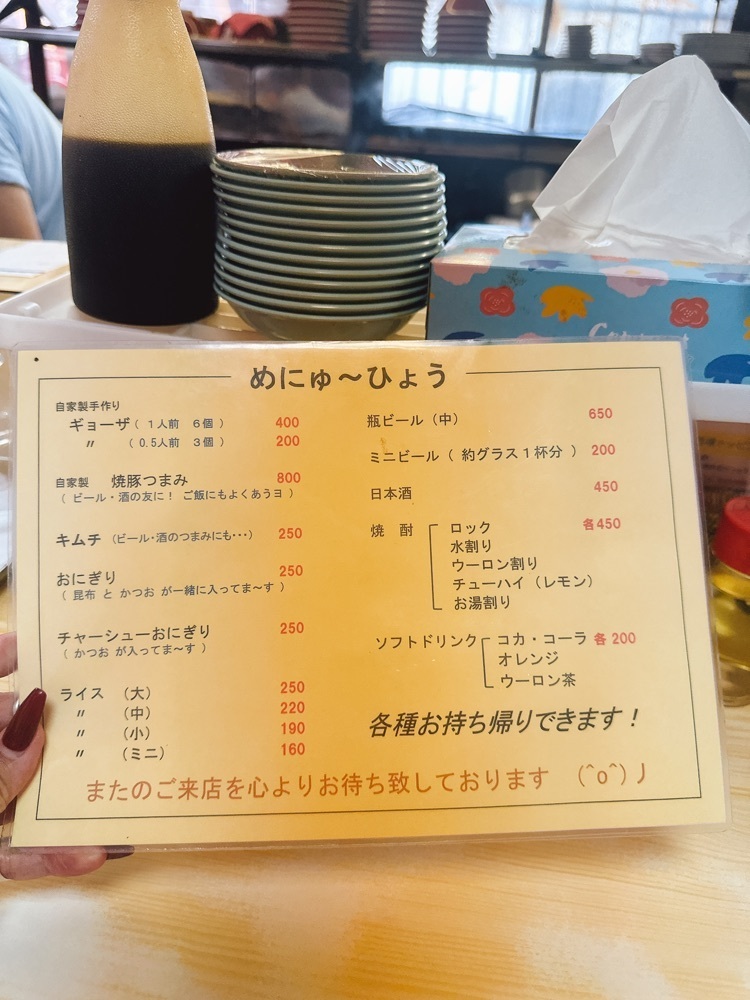 めにゅ～ひょう
自家製手作り
ギョーザ（１人前　６個　） 400
〃　（0.5人前　３個　） 200
自家製　焼豚つまみ 800
（ ビール・酒の友に！ ご飯にもよくあうヨ ）
キムチ （ビール・酒のつまみにも･･･） 250
おにぎり 250
（ 昆布 と かつお が一緒に入ってま～す ）
チャーシューおにぎり 250
（ かつお が入ってま～す ）
ライス （大） 250
〃 （中） 220
〃 （小） 190
〃 （ミニ） 160
瓶ビール（中） 650
ミニビール（ 約グラス１杯分 ） 200
日本酒 450
焼　酎 ロック 各450
水割り
ウーロン割り
チューハイ（レモン）
お湯割り
ソフトドリンク コカ・コーラ 各 200
オレンジ
ウーロン茶
各種お持ち帰りできます！
またのご来店を心よりお待ち致しております　(^o^)丿